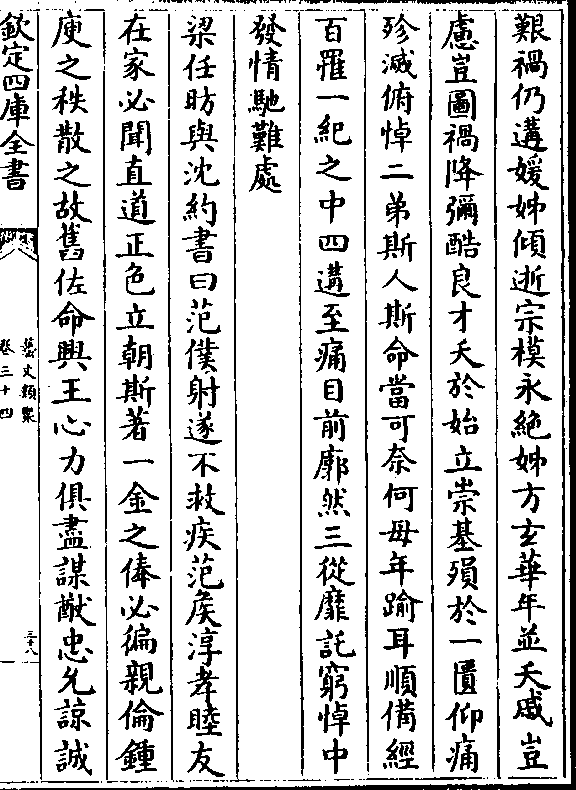 艱禍仍遘媛姊傾逝宗模永絶姊方玄華年並夭戚豈
慮豈圖禍降彌酷良才夭於始立崇基殞於一匱仰痛
殄滅俯悼二弟斯人斯命當可奈何毋年踰耳順備經
百罹一紀之中四遘至痛目前廓然三從靡託窮悼中
發情馳難處
梁任昉與沈約書曰范僕射遂不救疾范侯淳孝睦友
在家必聞直道正色立朝斯著一金之俸必徧親倫鍾
庾之秩散之故舊佐命興王心力俱盡謀猷忠允諒誠
欽定四庫全書
藝文類聚
卷三十四
三十八